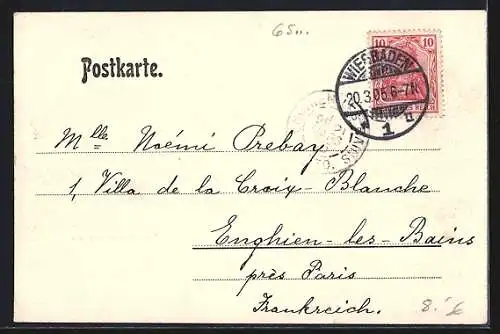 65..
Postkarte.
10 10
WIESBADEN
20.3.05.6-7N
* 1 d
Mlle Noémi Prebay
1, Villa de la Croix-Blanche
Enghien-les-Bains
près Paris
Frankreich.
8.